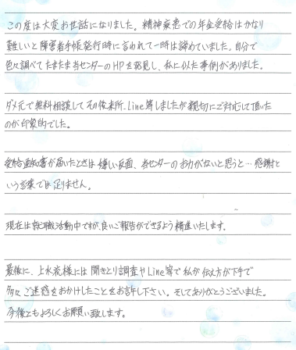 この度は大変お世話になりました。精神疾患での年金受給はかなり
難しいと障害者手帳発行時に言われて一時は諦めていました。自分で
色々調べてたまたま当センターのHPを発見し、私に似た事例がありました。
ダメ元で無料相談してその後来所、Line等しましたが親切にご対応して頂いた
のが印象的でした。
受給通知書が届いたときは嬉しい反面、当センターのお力がないと思うと…感謝と
いう言葉では足りません。
現在は就職活動中ですが、良いご報告ができるよう精進いたします。
最後に、上水流様には聞きとり調査やLine等で私が伝え方が下手で
多々ご迷惑をおかけしたことをお許し下さい。そしてありがとうございました。
今後ともよろしくお願い致します。